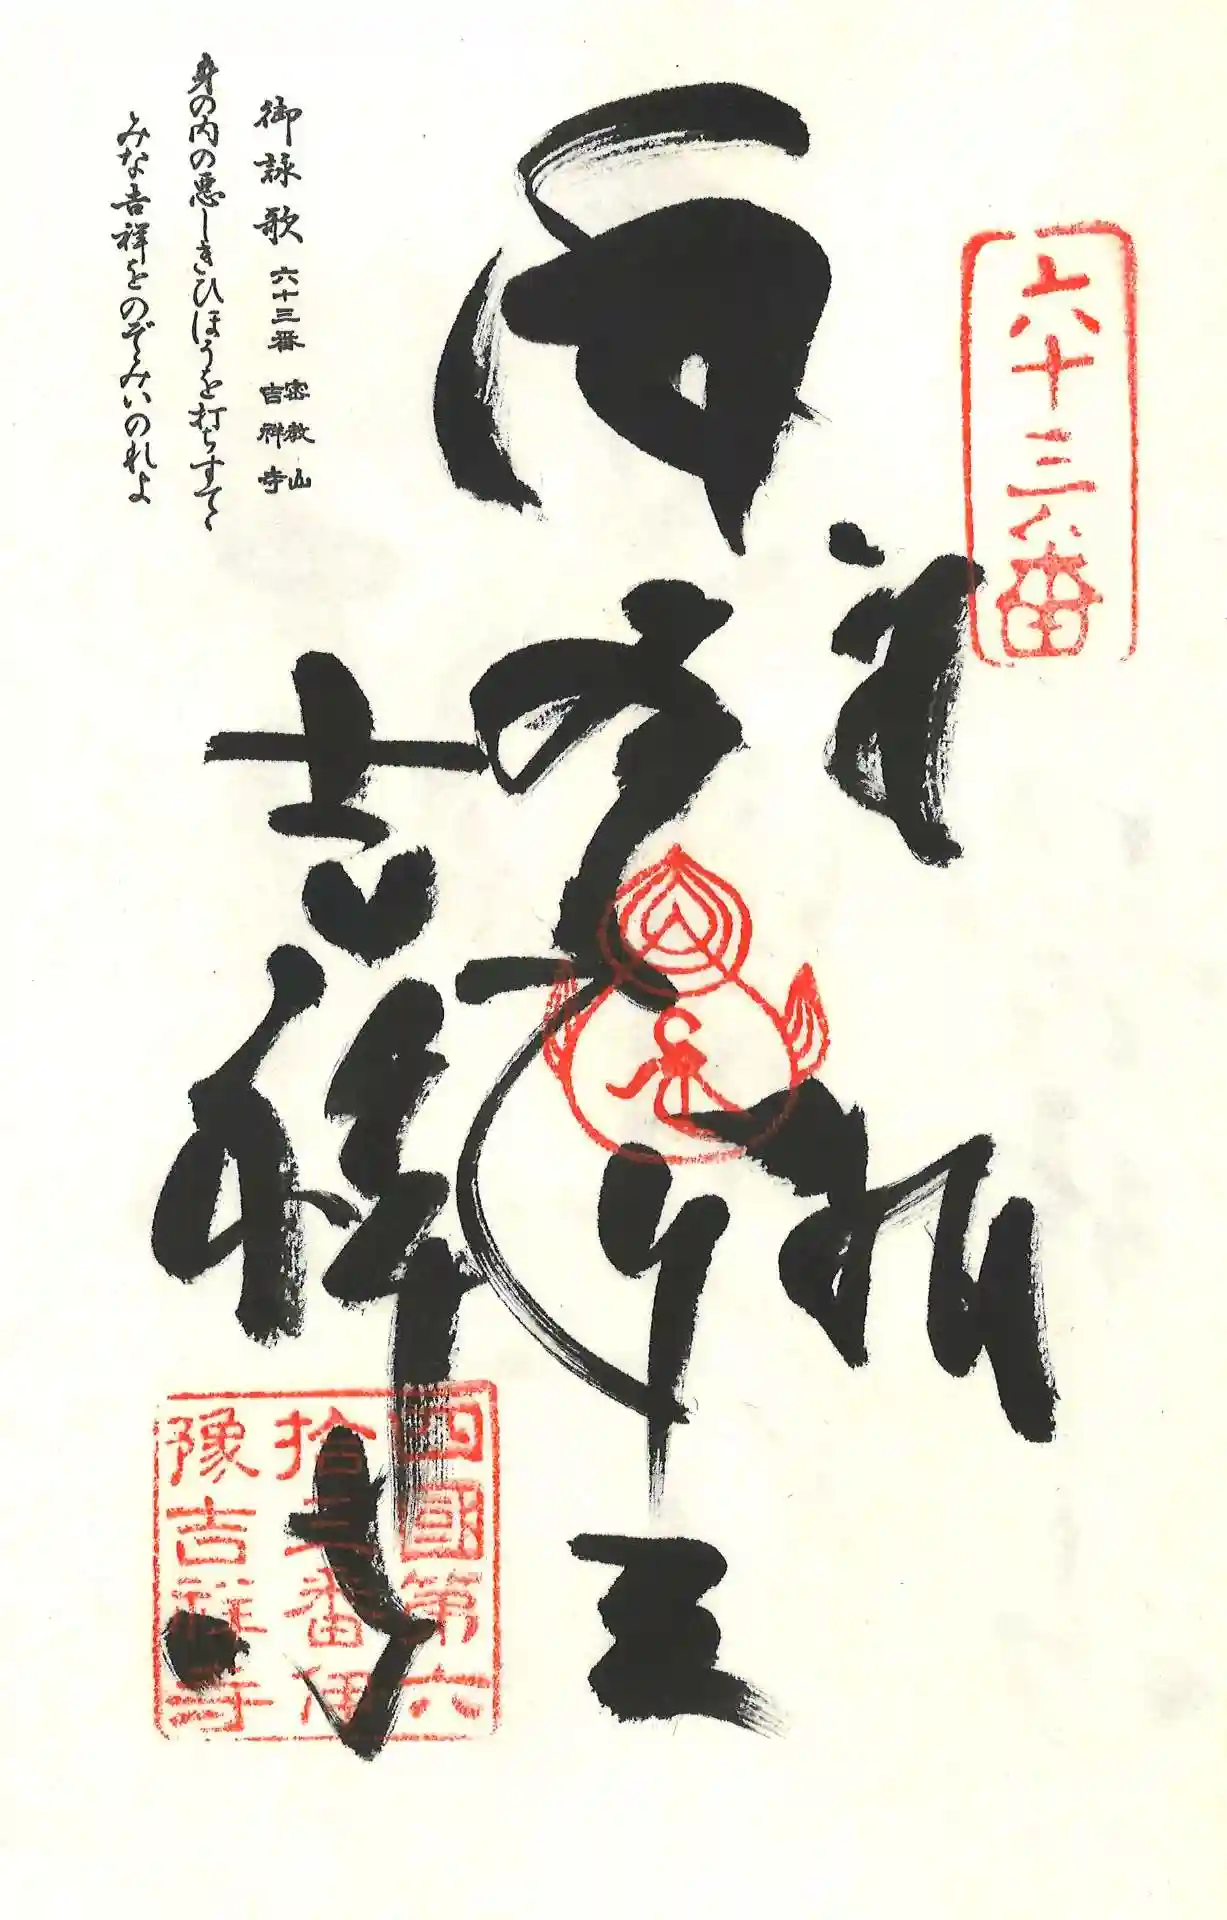 六十三番
奉拝
吉祥寺
四國第六
拾三番伊
豫吉祥寺
御詠歌 六十三番 密教山 吉祥寺
身の内の悪しきひほうを打ちすてゝ
みな吉祥をのぞみいのれよ